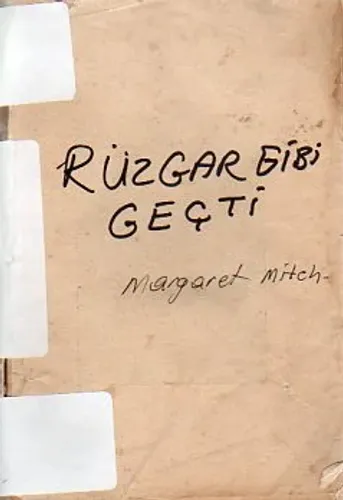 RÜZGAR GİBİ
GEÇTİ
Margaret Mitch-